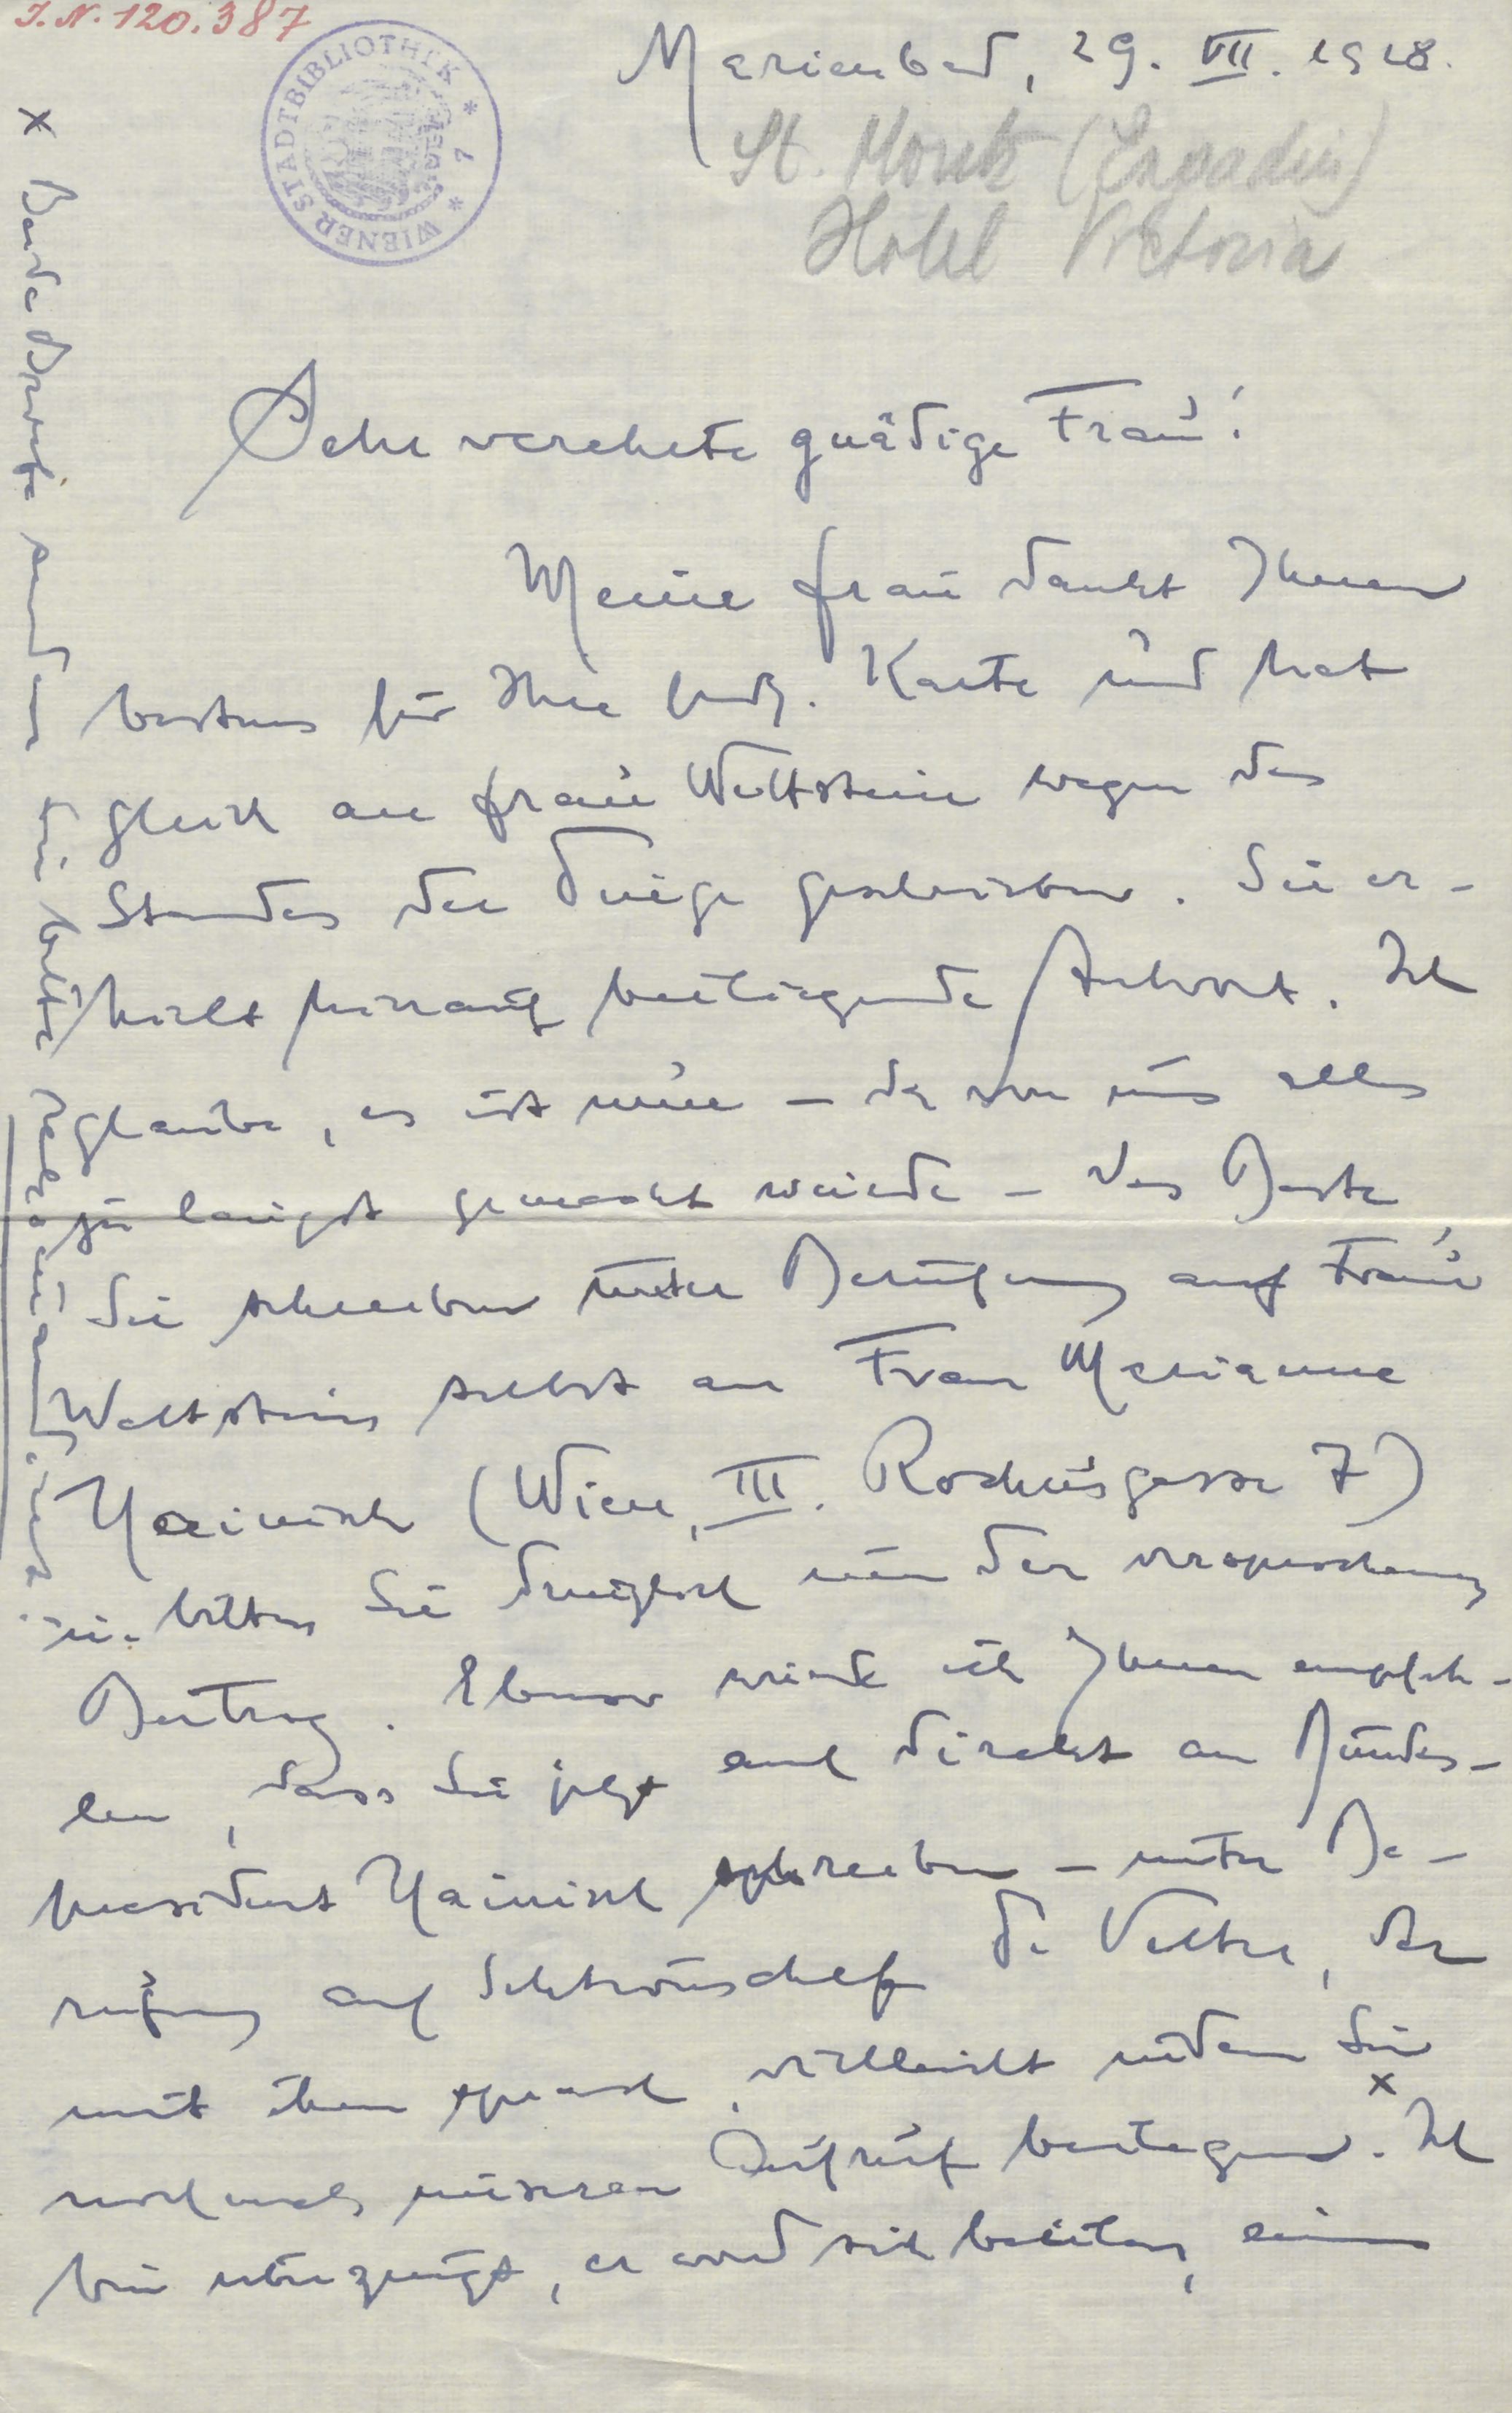 I.N. 120.387
WIENER STADTBIBLIOTHEK
Marienbad, 29. VII. 1928.
St. Moritz (Engadin)
Hotel Victoria
Sehr verehrte gnädige Frau!
Meine Frau dankt Ihnen
bestens für Ihre frdl. Karte und hat
gleich an Frau Wettstein wegen des
Standes der Dinge geschrieben. Sie er-
hielt hierauf beiliegende Antwort. Ich
glaube, es ist nun – da von uns alles
zu längst gemacht wurde – das Beste,
Sie schreiben unter Berufung auf Frau
Wettstein selbst an Frau Marianne
Hainisch (Wien, III. Rochusgasse 7)
u. bitten Sie dringlich um den versprochenen
Beitrag. Ebenso würde ich Ihnen empfeh-
len, dass Sie jetzt auch direkt an Bundes-
president Hainisch schreiben – unter Be-
rufung auf Sektionschef Dr Vetter, der
mit ihm sprach, vielleicht indem Sie
nochmals unseren Aufruf beilegen. x Ich
bin überzeugt, er wird sich beeilen, einen
x Beide Briefe sind aber
bitte